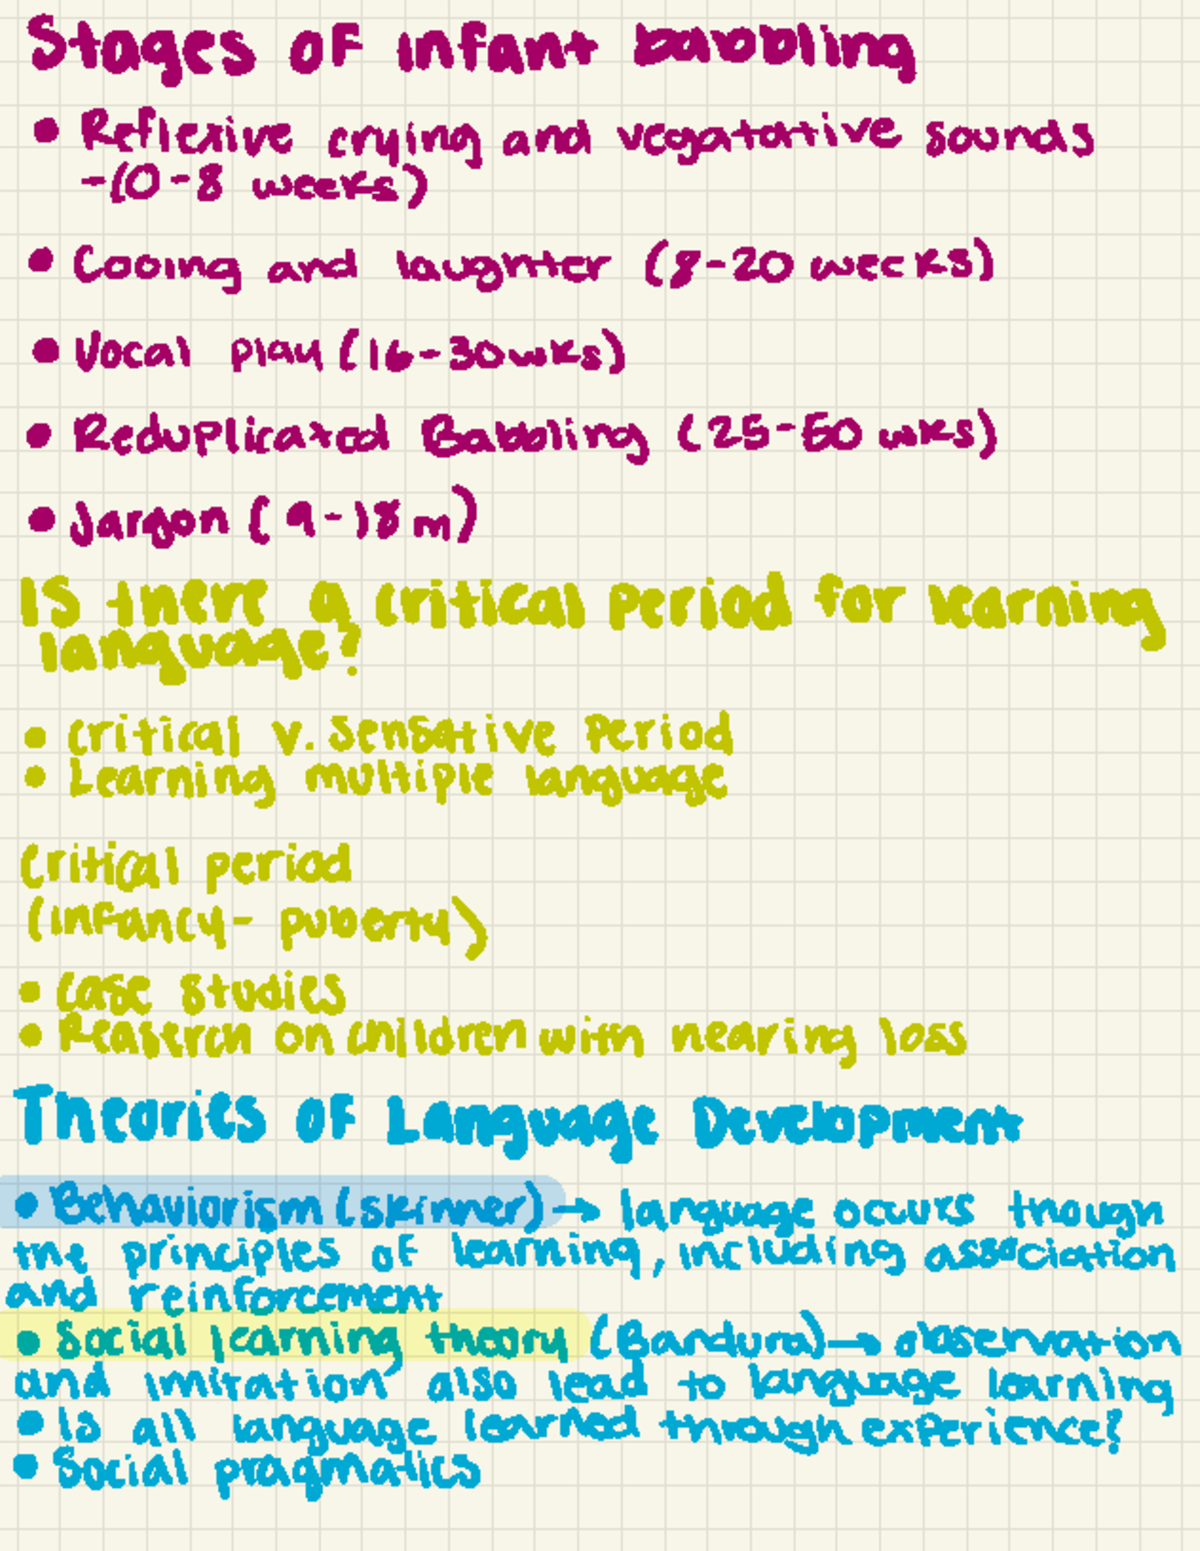 Stages of infant babbling
• Reflexive crying and vegatative sounds
-(0-8 weeks)
• Cooing and laughter (8-20 weeks)
• Vocal play (16-30wks)
• Reduplicated Babbling (25-50 wks)
• Jargon (9-18m)
Is there a critical period for learning
language?
• critical v. Sensative Period
• Learning multiple language
Critical period
(infancy- puberty)
• case studies
• Reaserch on children with hearing loss
Theories of Language Development
• Behaviorism (skinner) → language occurs though
the principles of learning, including association
and reinforcement
• Social learning theory (Bandura) → observation
and imitation also lead to language learning
• Is all language learned through experience?
• Social pragmatics